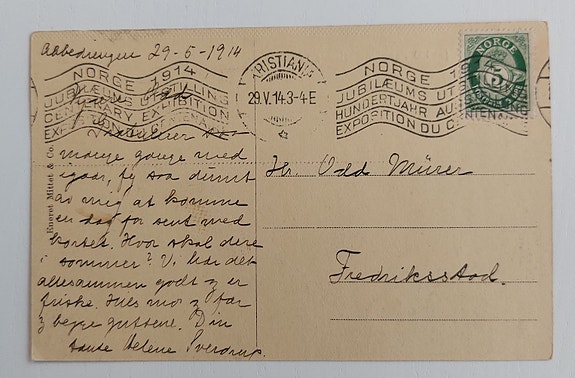 Abbediengen 29-5-1914
NORGE 1914
JUBILÆUMS UTSTILLING
CENTENARY EXHIBITION
EXPOSITION DU CENTENAIRE
KRISTIANIA
29.V.14.3-4E
NORGE 1914
JUBILÆUMS UT
HUNDERTJAHR AU
EXPOSITION DU C
NORGE
5
Kjære
Gratulerer saa
mange gange med
igaar, fy saa dumt
av mig at komme
en dag for sent med
kortet. Hvor skal dere
i sommer? Vi har det
allesammen godt og er
friske. Hils mor og far
og begge guttene. Din
tante Helene Sverdrup.
Eneret Mittet & Co.
Hr. Odd Mürer
Fredriksstad.